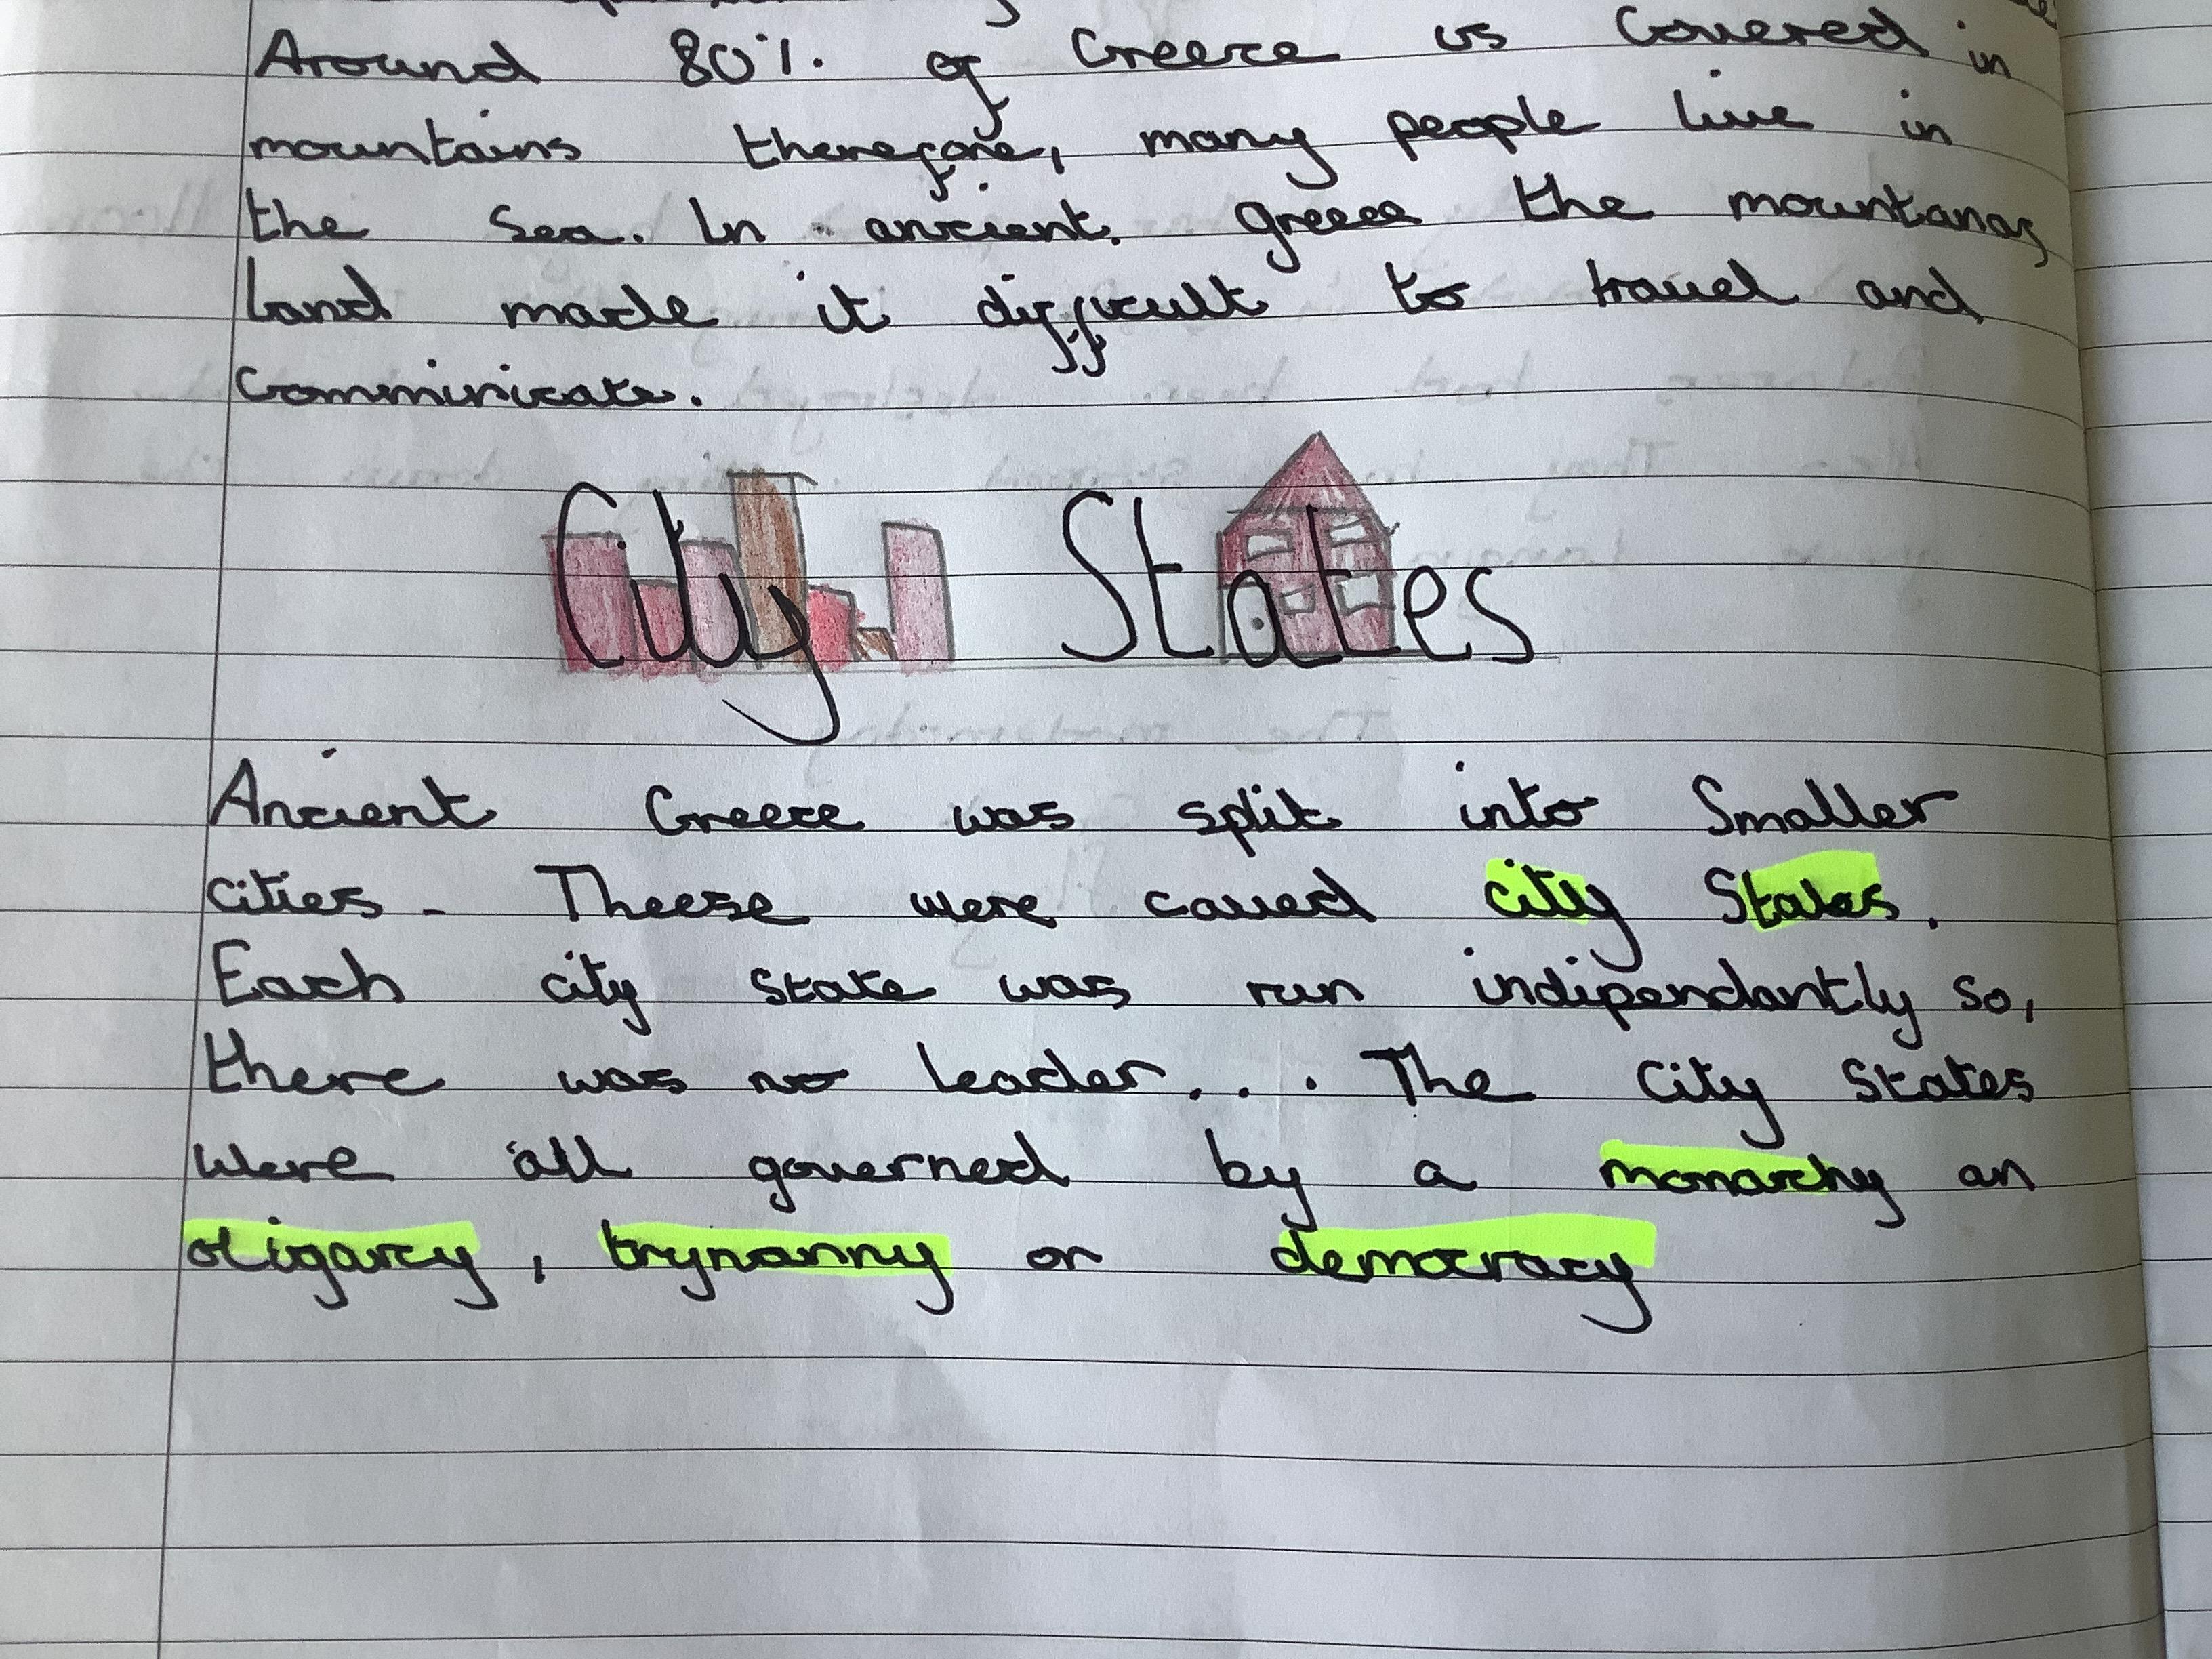 Around 80% of Greece is Covered in
mountains therefore, many people live in
the Sea. In ancient. greece the mountanas
land made it difficult to travel and
Communicate.
City States
Ancient Greece was split into Smaller
cities - Theese were caued city States.
Each city state was run indipendantly so,
there was no leader... The City States
were all governed by a monarchy an
oligarcy, trynanny or democracy